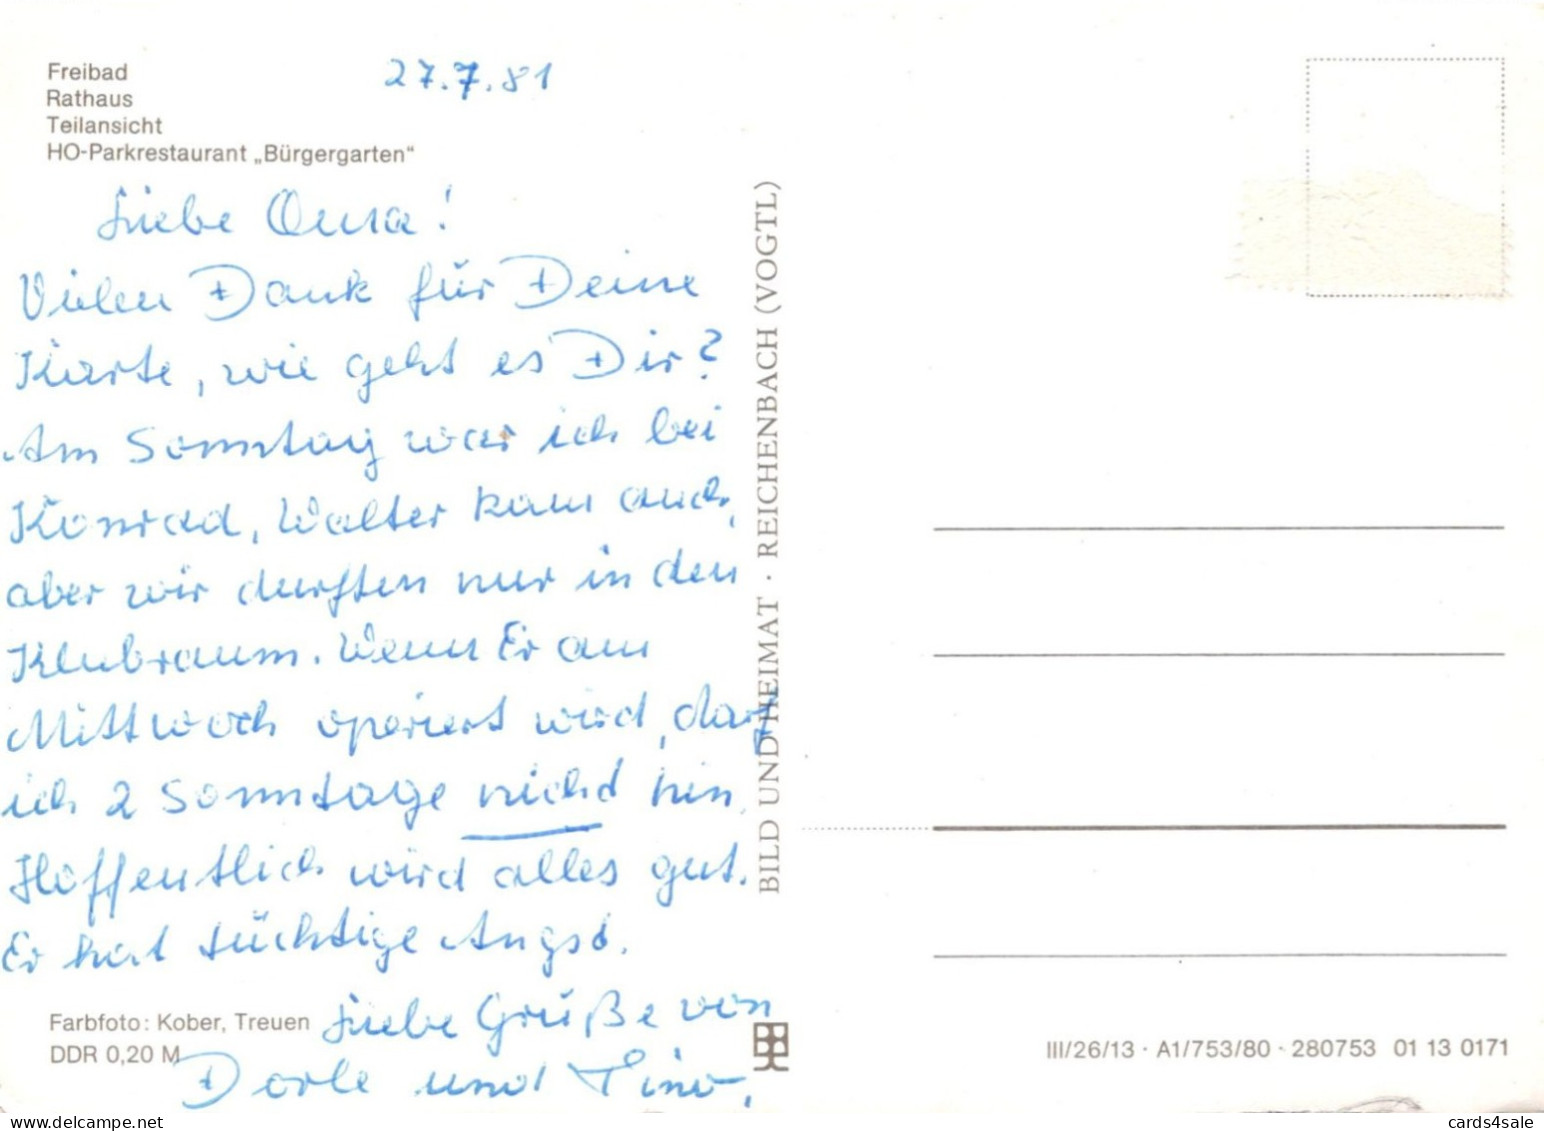 Freibad
Rathaus
Teilansicht
HO-Parkrestaurant „Bürgergarten“
27.7.81
Liebe Oma!
Vielen Dank für Deine
Karte, wie geht es Dir?
Am Sonntag war ich bei
Konrad, Walter kam auch,
aber wir durften nur in den
Klubraum. Wenn Er am
Mittwoch operiert wird, darf
ich 2 Sonntage nicht hin.
Hoffentlich wird alles gut.
Er hat tüchtige Angst.
Liebe Grüße von
Dorle und Tino,
Farbfoto: Kober, Treuen
DDR 0,20 M
BILD UND HEIMAT · REICHENBACH (VOGTL)
III/26/13 · A1/753/80 · 280753 01 13 0171
cards4sale